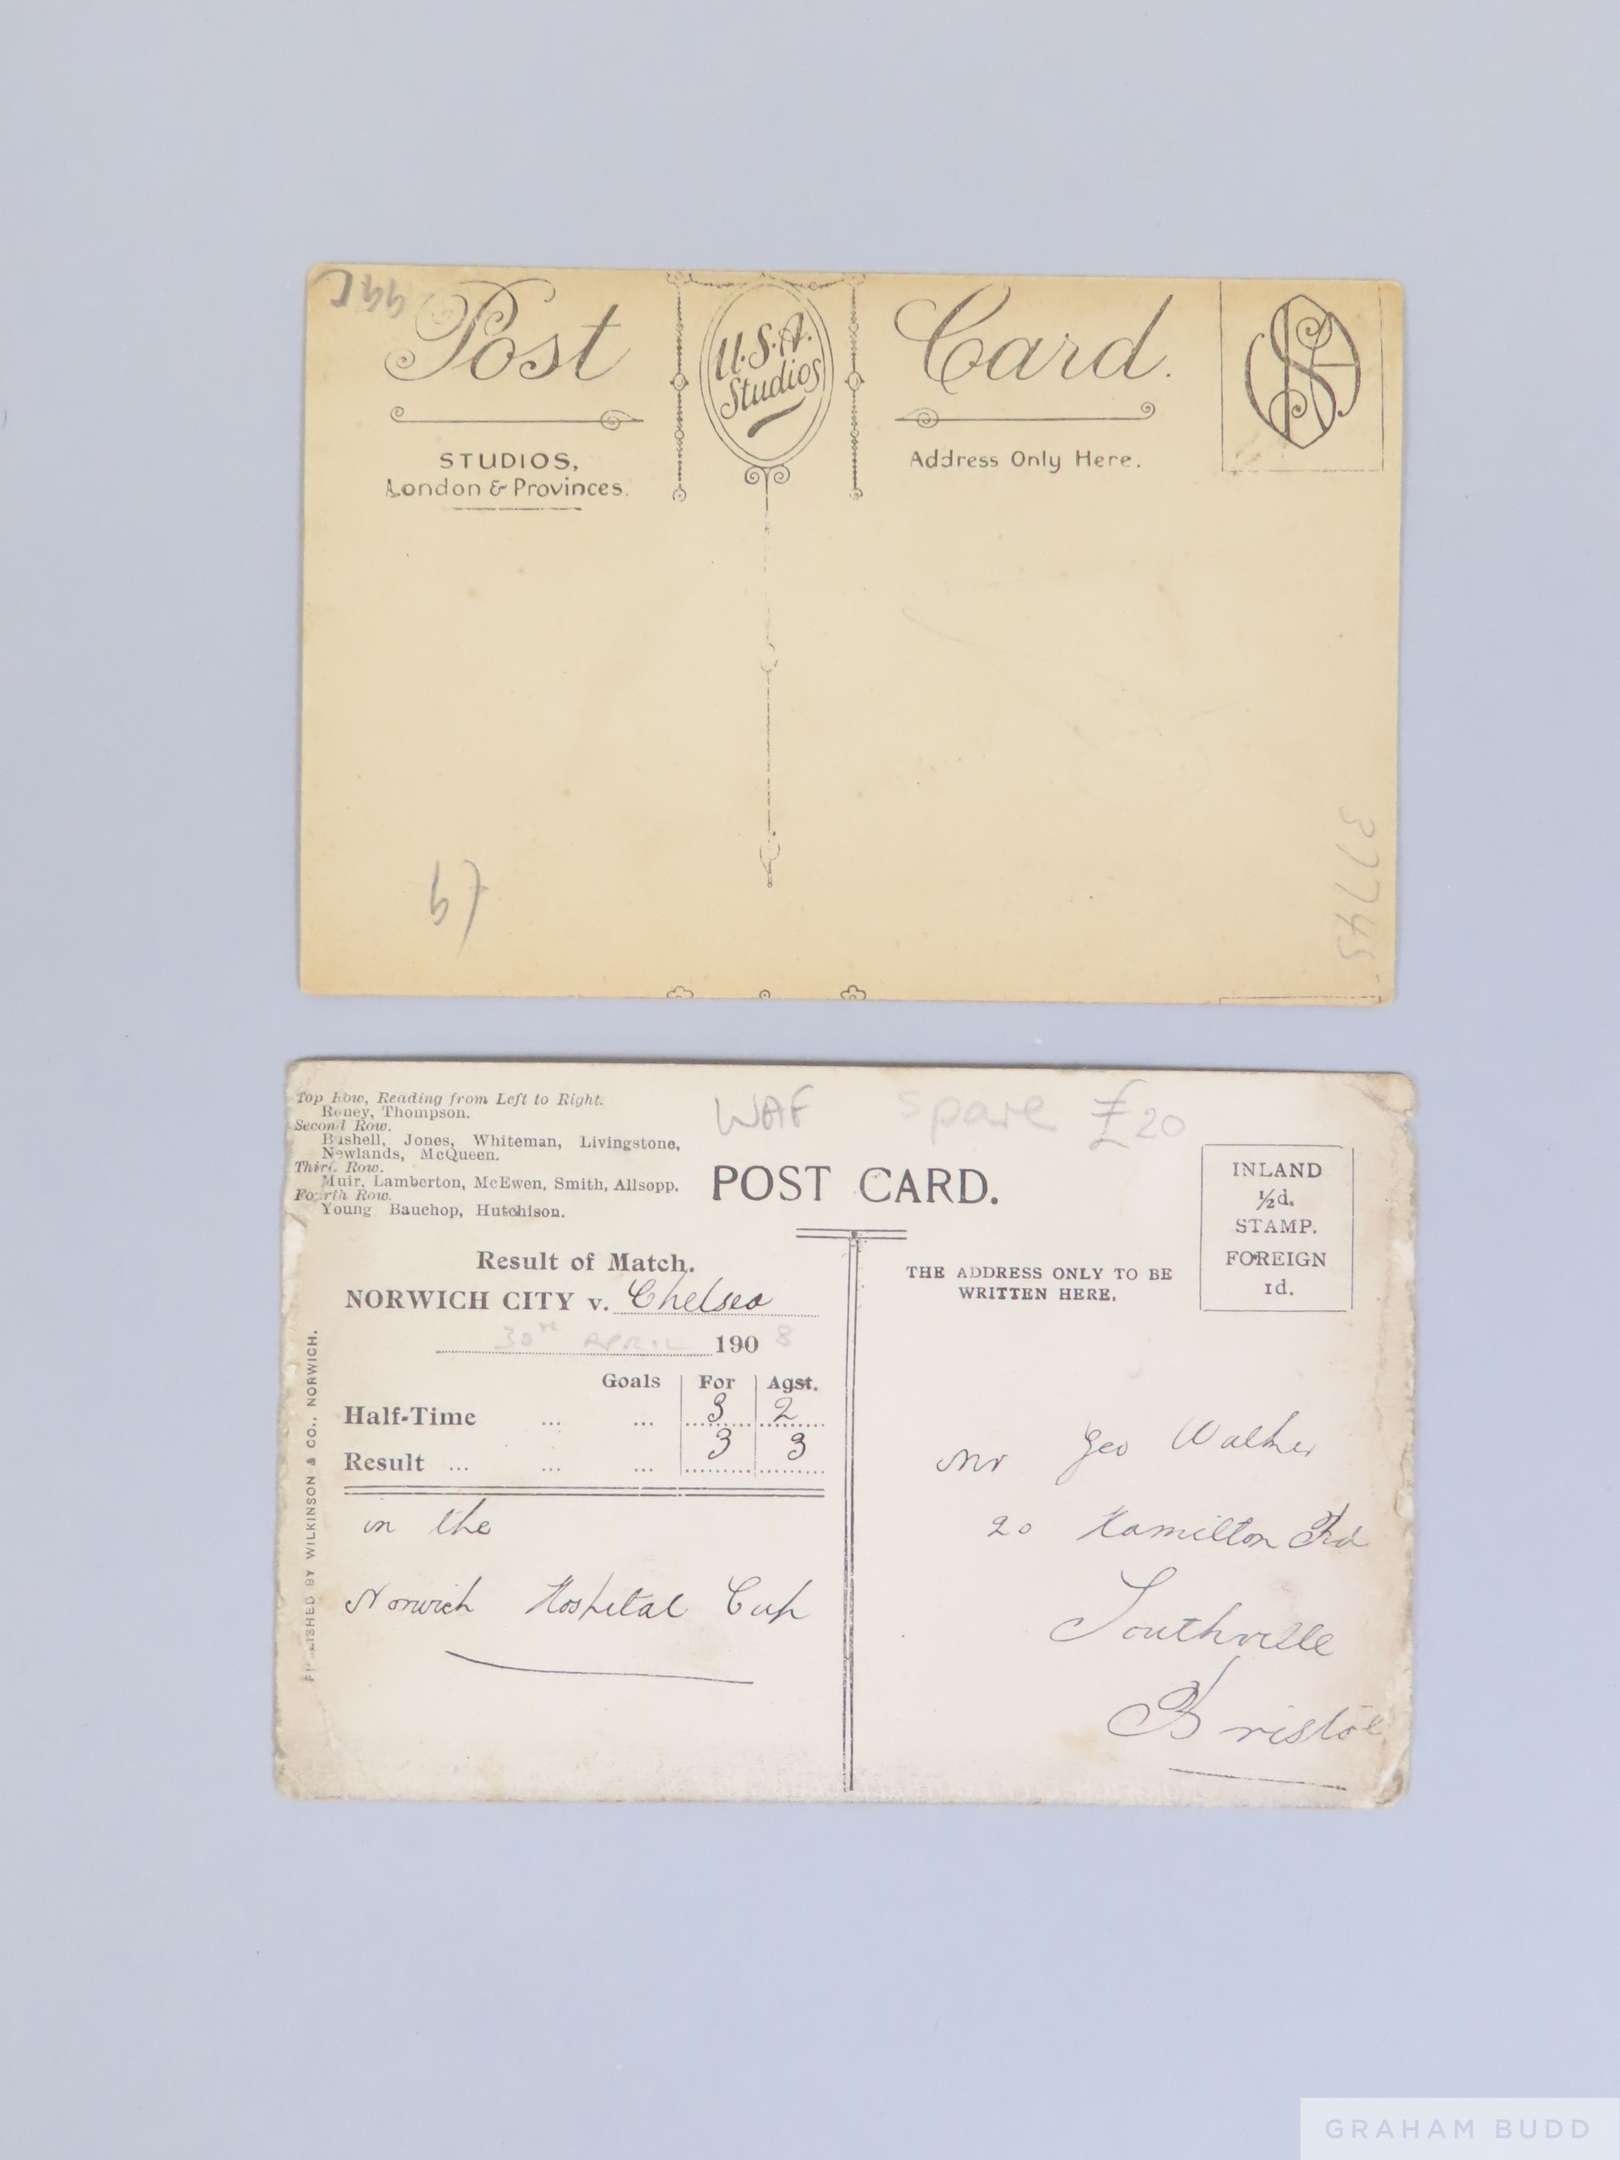 Post
U.S.A.
Studios
Card.
STUDIOS,
London & Provinces.
Address Only Here.
37745
Top Row, Reading from Left to Right.
Roney, Thompson.
Second Row.
Bushell, Jones, Whiteman, Livingstone,
Newlands, McQueen.
Third Row.
Muir, Lamberton, McEwen, Smith, Allsopp.
Fourth Row.
Young Bauchop, Hutchison.
WAF spare £20
POST CARD.
INLAND
½d.
STAMP.
FOREIGN
1d.
Result of Match.
NORWICH CITY v. Chelsea
30th APRIL 1908
Goals For Agst.
Half-Time ... ... 3 2
Result ... ... ... 3 3
in the
Norwich Hospital Cup
PUBLISHED BY WILKINSON & CO., NORWICH.
THE ADDRESS ONLY TO BE
WRITTEN HERE.
Mr Geo Walker
20 Hamilton Rd
Southville
Bristol
GRAHAM BUDD